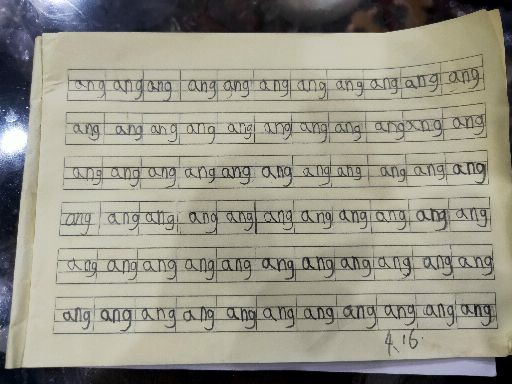 ang ang ang ang ang ang ang ang ang ang ang
ang ang ang ang ang ang ang ang ang xng ang
ang ang ang ang ang ang ang ang ang ang ang
ang ang ang ang ang ang ang ang ang ang ang
ang ang ang ang ang ang ang ang ang ang ang
ang ang ang ang ang ang ang ang ang ang ang
4.16.